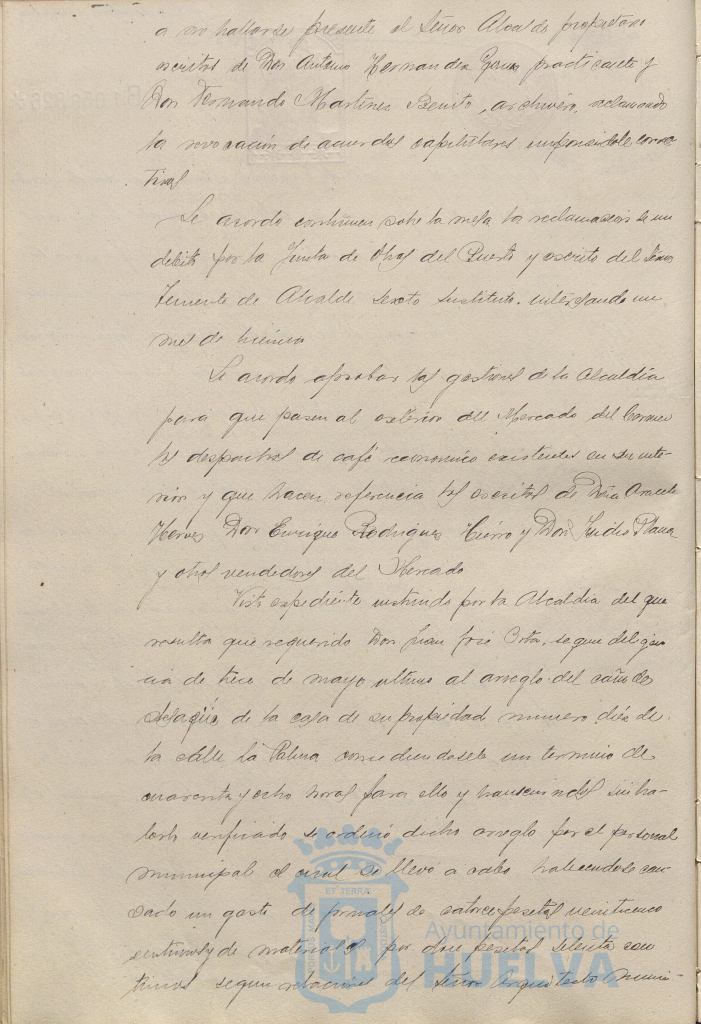 a no hallarse presente el Señor Alcalde propietario
escritos de Don Antonio Hernandez practicante y
Don Fernando Martinez Benito, archivero, reclamando
la revocación de acuerdos capitulares imponiendole correc
tivos
Se acordo continuen sobre la mesa la reclamacion de un
debito por la Junta de Obras del Puerto y escrito del Señor
Teniente de Alcalde sexto sustituto, interesando un
mes de licencia
Se acordo aprobar las gestiones de la Alcaldia
para que pasen al exterior del Mercado del Carmen
los despachos de café economico existentes en su inte-
rior y que hacen referencia los escritos de Doña Araceli
Don Enrique Rodriguez Hierro y Don Isidro
y otros vendedores del Mercado
Visto expediente instruido por la Alcaldia del que
resulta que requerido Don Juan José segun diligen
cia de trece de mayo ultimo al arreglo del caño de
desagüe de la casa de su propiedad numero diez de
la calle La Palma concediendosele un termino de
cuarenta y ocho horas para ello y transcurridos sin ha-
berlo verificado se ordenó dicho arreglo por el personal
municipal el cual se llevó a cabo habiendose cau
sado un gasto de jornales de catorce pesetas veinticinco
centimos y de materiales por doce pesetas setenta cen
timos segun relaciones del Señor Arquitecto muni-
Ayuntamiento de
HUELVA